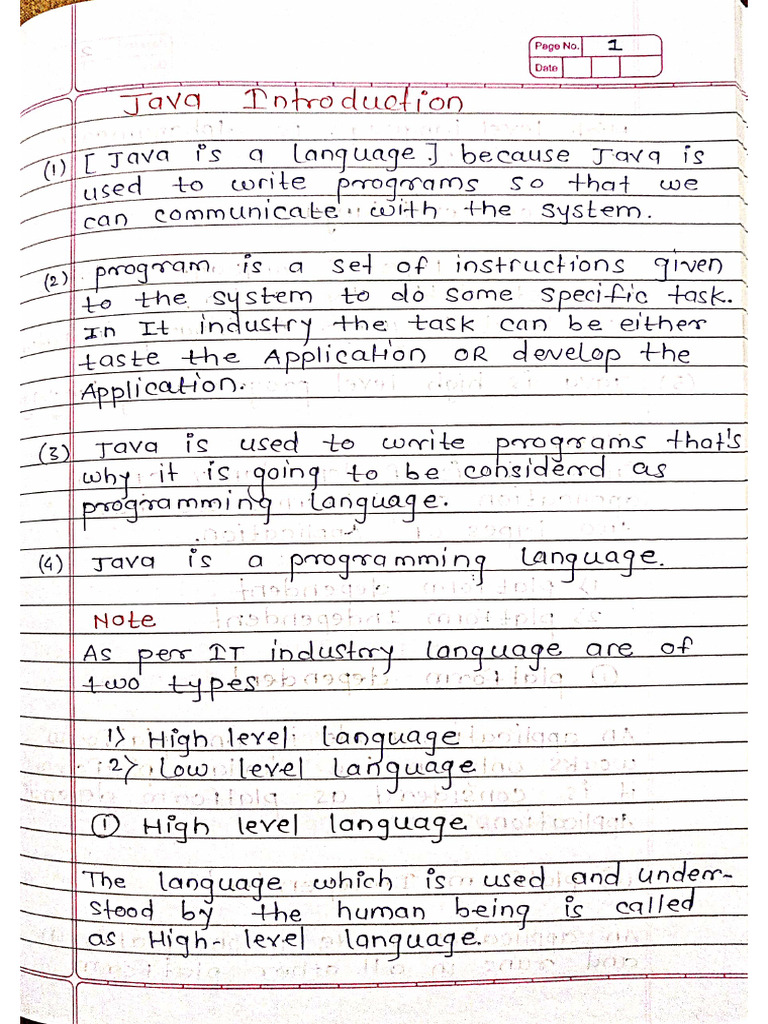 Page No. 1
Date
Java Introduction
(1) [Java is a language] because Java is
used to write programs so that we
can communicate with the system.
(2) program is a set of instructions given
to the system to do some specific task.
In It industry the task can be either
taste the Application OR develop the
Application.
(3) Java is used to write programs that's
why it is going to be considerd as
programming language.
(4) Java is a programming language.
Note
As per IT industry language are of
two types
1) High level language
2) Low level language
① High level language
The language which is used and under-
stood by the human being is called
as High-level language.